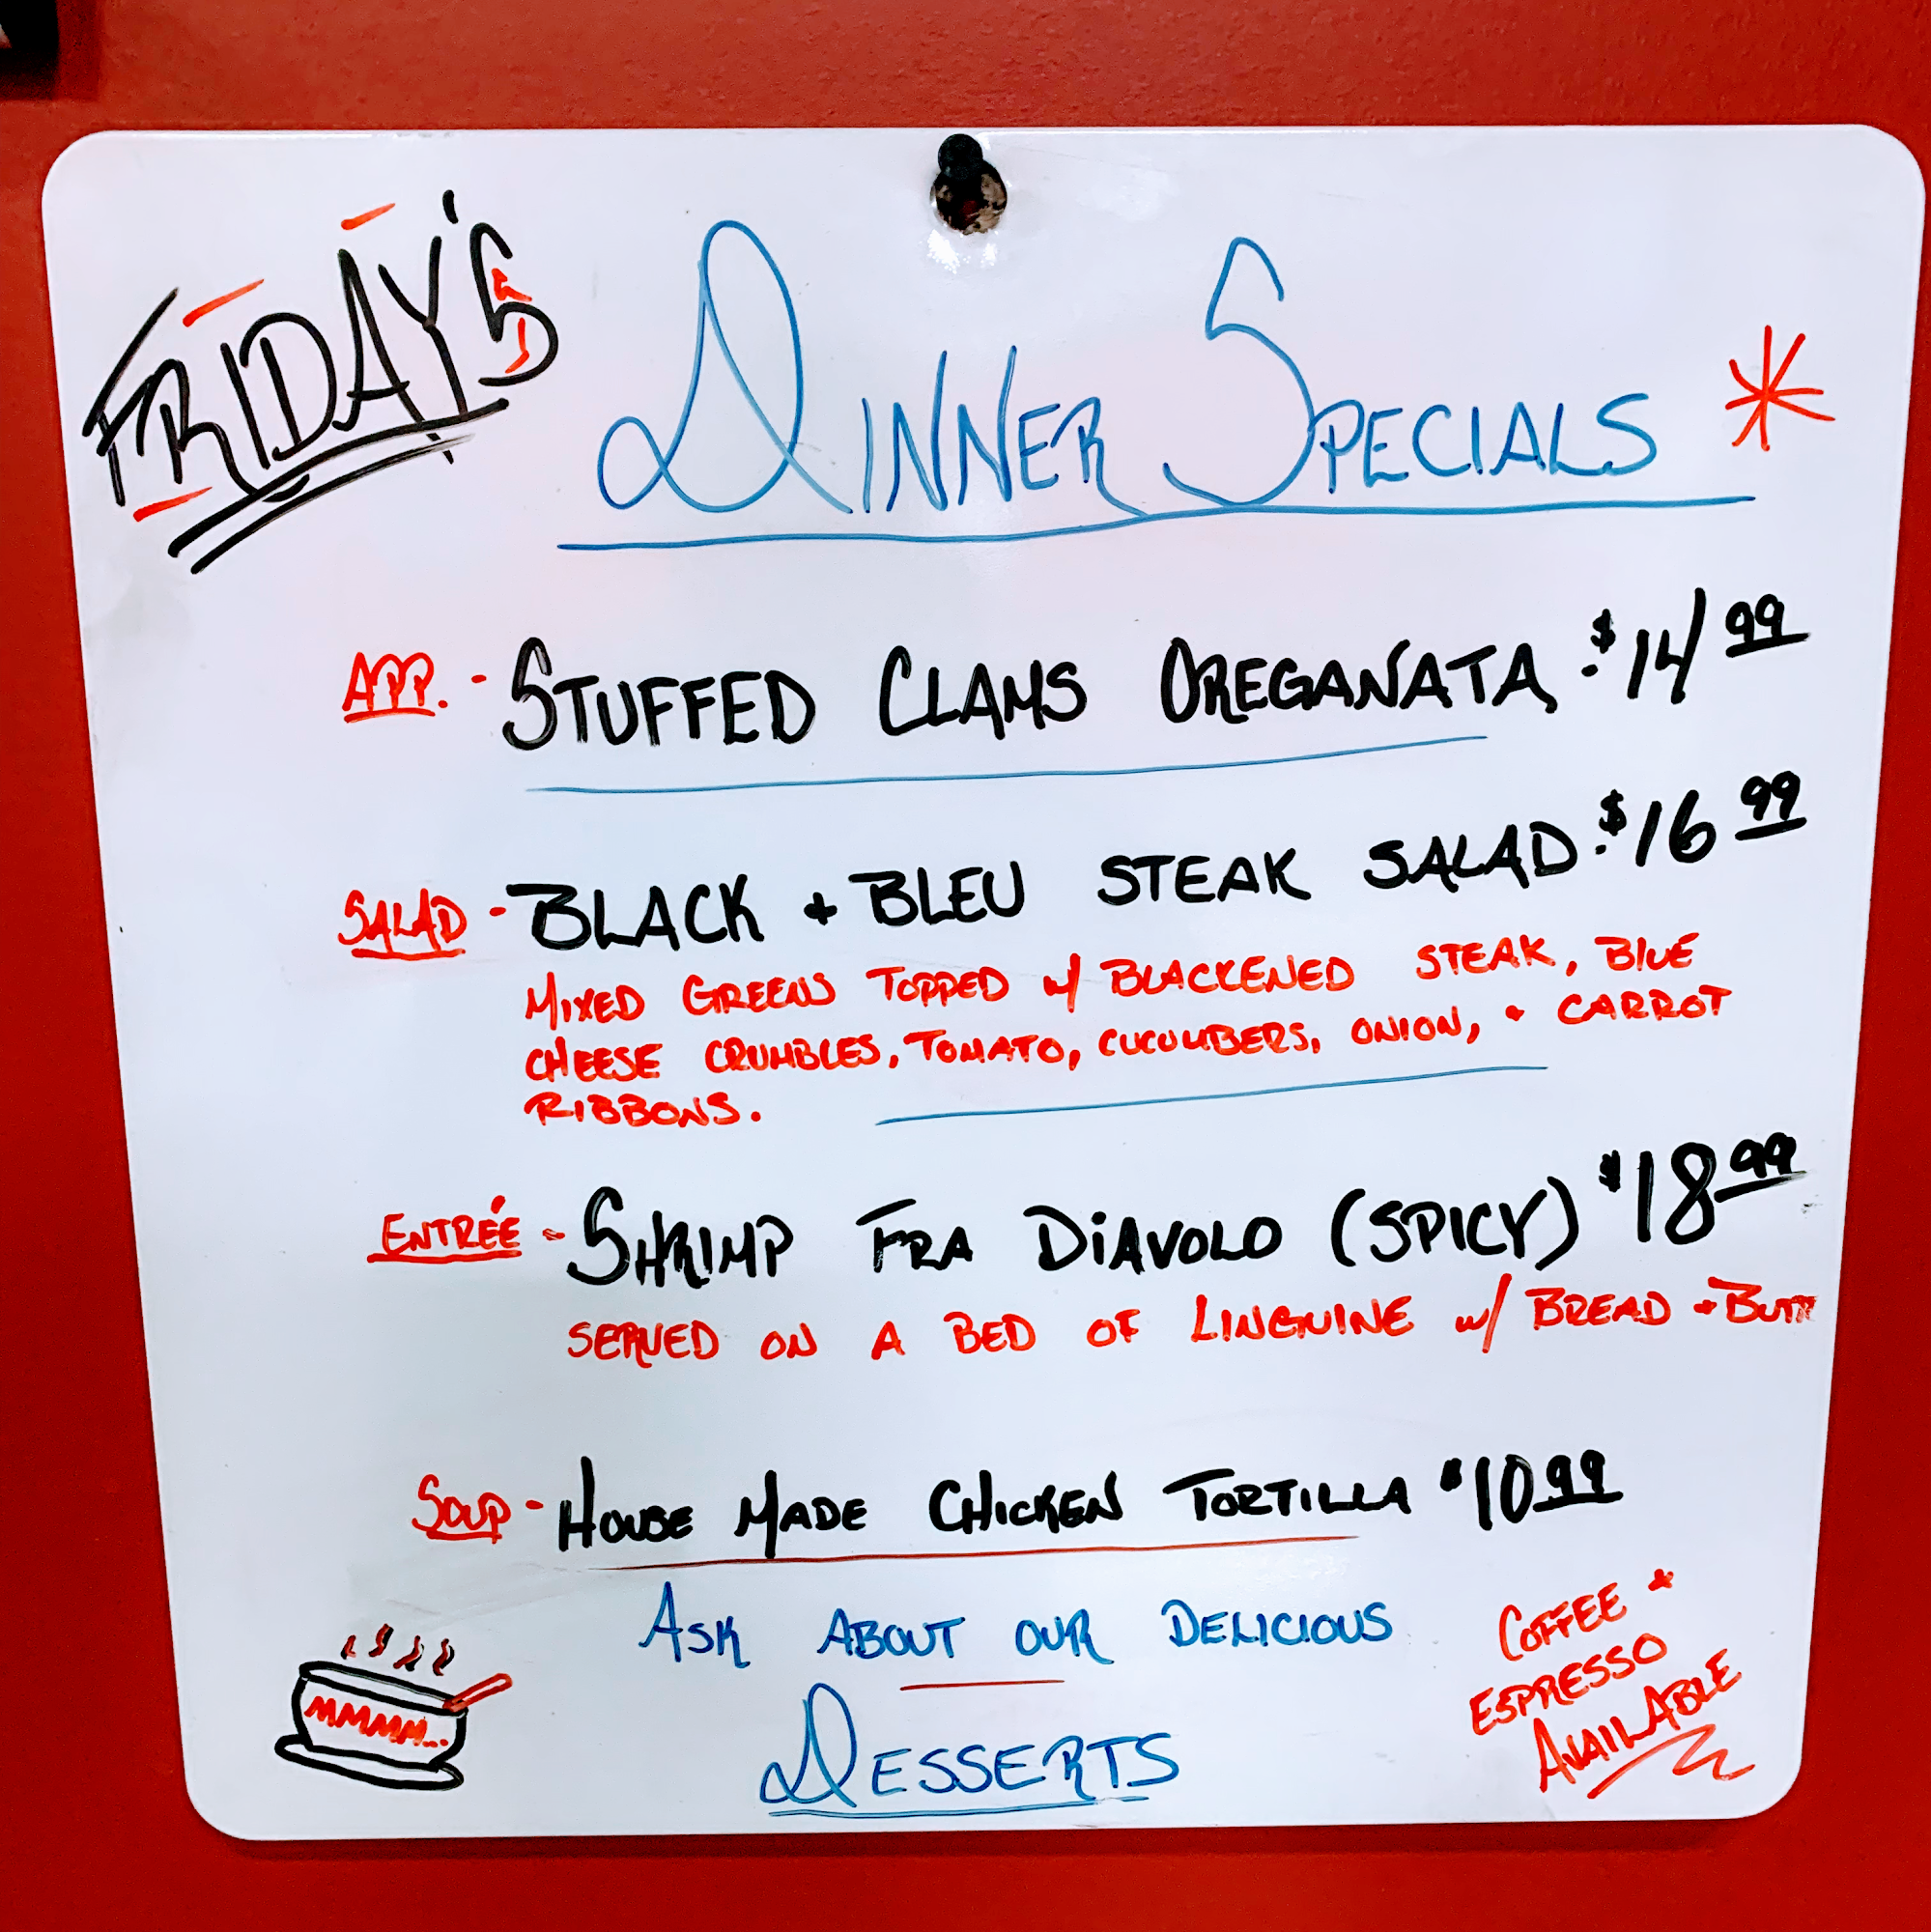 FRIDAY'S
DINNER SPECIALS
APP. - STUFFED CLAMS OREGANATA $14.99
SALAD - BLACK + BLEU STEAK SALAD $16.99
MIXED GREENS TOPPED w/ BLACKENED STEAK, BLUE
CHEESE CRUMBLES, TOMATO, CUCUMBERS, ONION, + CARROT
RIBBONS.
ENTRÉE - SHRIMP FRA DIAVOLO (SPICY) $18.99
SERVED ON A BED OF LINGUINE w/ BREAD +
SOUP - HOUSE MADE CHICKEN TORTILLA $10.99
ASK ABOUT OUR DELICIOUS
DESSERTS
MMMM...
COFFEE &
ESPRESSO
AVAILABLE